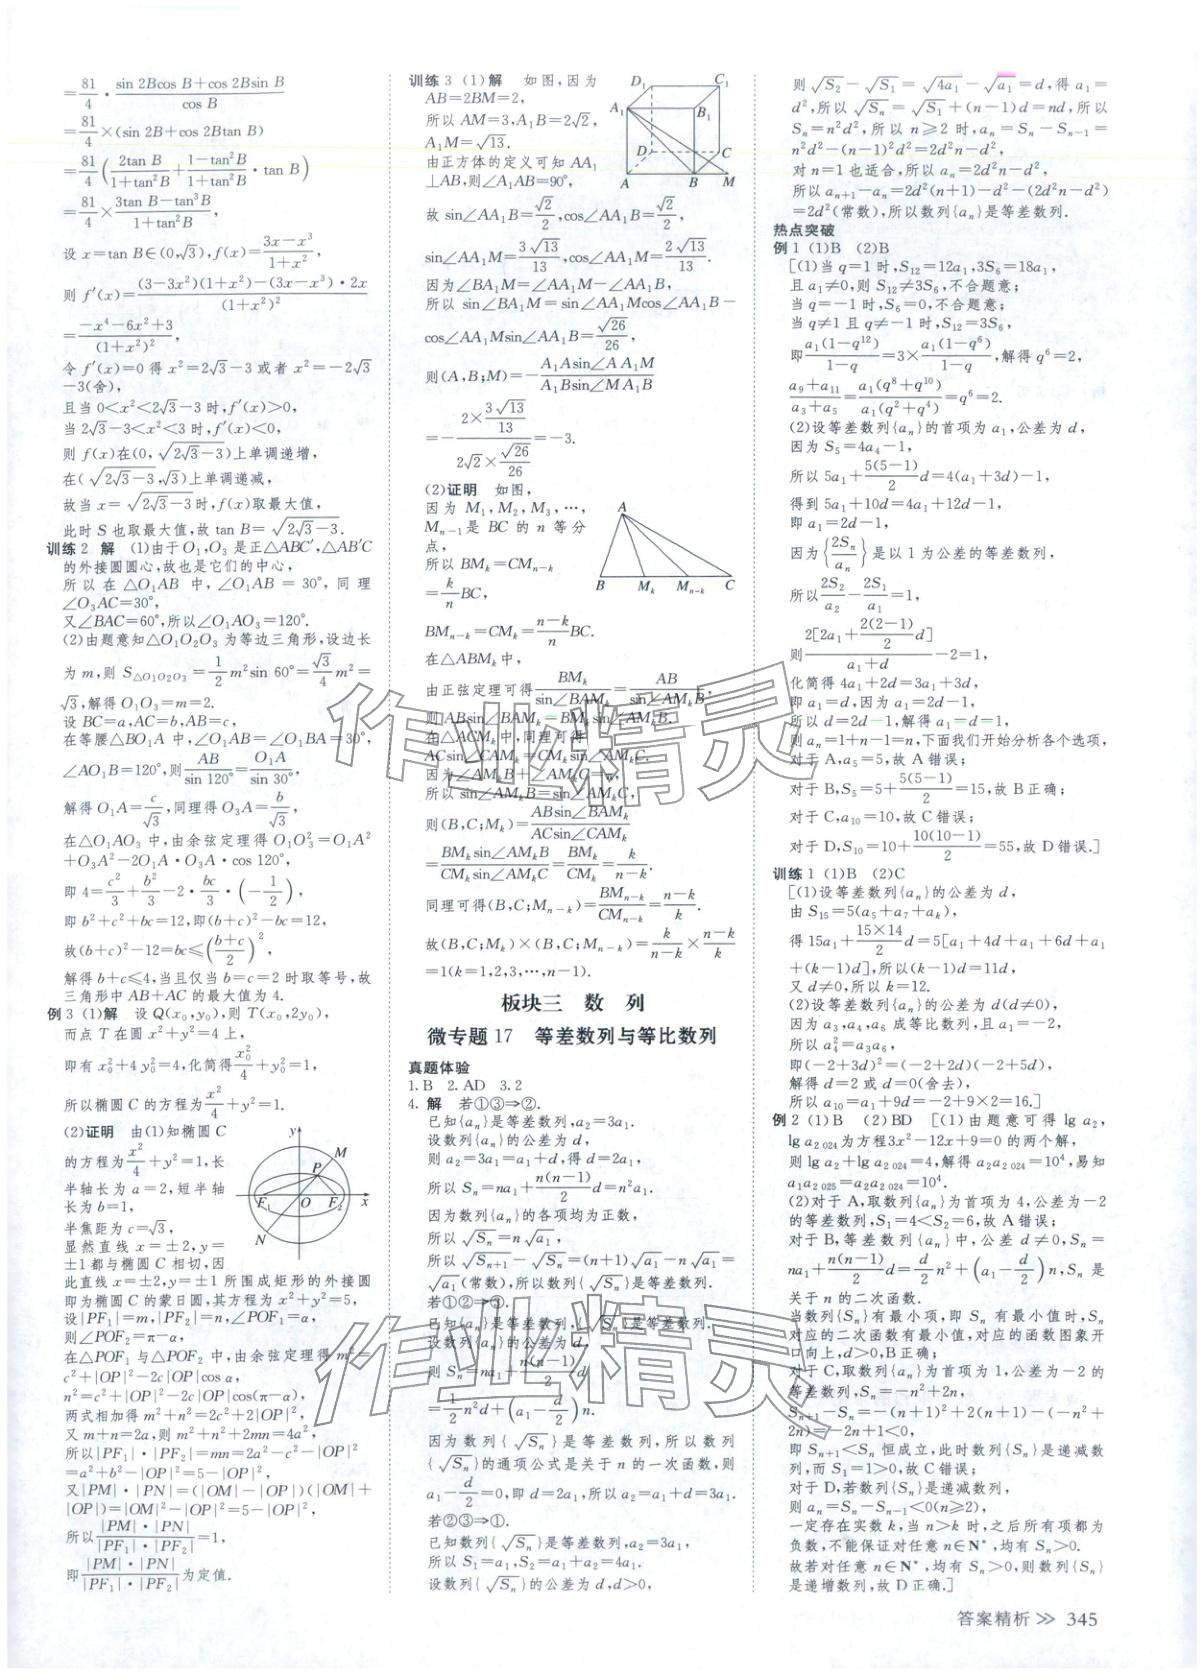 =81/4·(sin 2Bcos B+cos 2Bsin B)/cos B
=81/4×(sin 2B+cos 2Btan B)
=81/4(2tan B/(1+tan²B)+(1-tan²B)/(1+tan²B)·tan B)
=81/4×(3tan B-tan³B)/(1+tan²B),
设 x=tan B∈(0,√3),f(x)=(3x-x³)/(1+x²),
则 f′(x)=((3-3x²)(1+x²)-(3x-x³)·2x)/(1+x²)²
=(-x⁴-6x²+3)/(1+x²)²,
令 f′(x)=0 得 x²=2√3-3 或者 x²=-2√3
-3(舍),
且当 0<x²<2√3-3 时,f′(x)>0,
当 2√3-3<x²<3 时,f′(x)<0,
则 f(x)在(0,√(2√3-3))上单调递增,
在(√(2√3-3),√3)上单调递减,
故当 x=√(2√3-3)时,f(x)取最大值,
此时 S 也取最大值,故 tan B=√(2√3-3).
训练 2 解 (1)由于 O₁,O₃ 是正△ABC′,△AB′C
的外接圆圆心,故也是它们的中心,
所以在△O₁AB 中,∠O₁AB=30°,同理
∠O₃AC=30°,
又∠BAC=60°,所以∠O₁AO₃=120°.
(2)由题意知△O₁O₂O₃ 为等边三角形,设边长
为 m,则 S△O₁O₂O₃=1/2 m²sin 60°=√3/4 m²=
√3,解得 O₁O₃=m=2.
设 BC=a,AC=b,AB=c,
在等腰△BO₁A 中,∠O₁AB=∠O₁BA=30°,
∠AO₁B=120°,则AB/sin 120°=O₁A/sin 30°,
解得 O₁A=c/√3,同理得 O₃A=b/√3,
在△O₁AO₃ 中,由余弦定理得 O₁O₃²=O₁A²
+O₃A²-2O₁A·O₃A·cos 120°,
即 4=c²/3+b²/3-2·bc/3·(-1/2),
即 b²+c²+bc=12,即(b+c)²-bc=12,
故(b+c)²-12=bc≤((b+c)/2)²,
解得 b+c≤4,当且仅当 b=c=2 时取等号,故
三角形中 AB+AC 的最大值为 4.
例 3 (1)解 设 Q(x₀,y₀),则 T(x₀,2y₀),
而点 T 在圆 x²+y²=4 上,
即有 x₀²+4y₀²=4,化简得x₀²/4+y₀²=1,
所以椭圆 C 的方程为x²/4+y²=1.
(2)证明 由(1)知椭圆 C
的方程为x²/4+y²=1,长
半轴长为 a=2,短半轴
长为 b=1,
半焦距为 c=√3,
显然直线 x=±2,y=
±1 都与椭圆 C 相切,因
y M P F₁ O F₂ x N
此直线 x=±2,y=±1 所围成矩形的外接圆
即为椭圆 C 的蒙日圆,其方程为 x²+y²=5,
设|PF₁|=m,|PF₂|=n,∠POF₁=α,
则∠POF₂=π-α,
在△POF₁ 与△POF₂ 中,由余弦定理得 m²=
c²+|OP|²-2c|OP|cos α,
n²=c²+|OP|²-2c|OP|cos(π-α),
两式相加得 m²+n²=2c²+2|OP|²,
又 m+n=2a,则 m²+n²+2mn=4a²,
所以|PF₁|·|PF₂|=mn=2a²-c²-|OP|²
=a²+b²-|OP|²=5-|OP|²,
又|PM|·|PN|=(|OM|-|OP|)(|OM|+
|OP|)=|OM|²-|OP|²=5-|OP|²,
所以(|PM|·|PN|)/(|PF₁|·|PF₂|)=1,
即(|PM|·|PN|)/(|PF₁|·|PF₂|)为定值.
训练 3 (1)解 如图,因为
AB=2BM=2,
所以 AM=3,A₁B=2√2,
A₁M=√13.
由正方体的定义可知 AA₁
⊥AB,则∠A₁AB=90°,
D₁ C₁ A₁ B₁ D C A B M
故 sin∠AA₁B=√2/2,cos∠AA₁B=√2/2,
sin∠AA₁M=3√13/13,cos∠AA₁M=2√13/13.
因为∠BA₁M=∠AA₁M-∠AA₁B,
所以 sin∠BA₁M=sin∠AA₁Mcos∠AA₁B-
cos∠AA₁Msin∠AA₁B=√26/26,
则(A,B;M)=-(A₁Asin∠AA₁M)/(A₁Bsin∠MA₁B)
=-(2×3√13/13)/(2√2×√26/26)=-3.
(2)证明 如图,
因为 M₁,M₂,M₃,…,
Mₙ₋₁是 BC 的 n 等分
点,
所以 BMₖ=CMₙ₋ₖ
=k/n BC,
A B Mₖ Mₙ₋ₖ C
BMₙ₋ₖ=CMₖ=(n-k)/n BC.
在△ABMₖ中,
由正弦定理可得BMₖ/sin∠BAMₖ=AB/sin∠AMₖB,
则 ABsin∠BAMₖ=BMₖsin∠AMₖB.
在△ACMₖ中,同理可得
ACsin∠CAMₖ=CMₖsin∠AMₖC,
因为∠AMₖB+∠AMₖC=π,
所以 sin∠AMₖB=sin∠AMₖC,
则(B,C;Mₖ)=ABsin∠BAMₖ/ACsin∠CAMₖ
=BMₖsin∠AMₖB/CMₖsin∠AMₖC=BMₖ/CMₖ=k/(n-k).
同理可得(B,C;Mₙ₋ₖ)=BMₙ₋ₖ/CMₙ₋ₖ=(n-k)/k.
故(B,C;Mₖ)×(B,C;Mₙ₋ₖ)=k/(n-k)×(n-k)/k
=1(k=1,2,3,…,n-1).
板块三 数 列
微专题 17 等差数列与等比数列
真题体验
1.B 2.AD 3.2
4.解 若①③⇒②.
已知{aₙ}是等差数列,a₂=3a₁.
设数列{aₙ}的公差为 d,
则 a₂=3a₁=a₁+d,得 d=2a₁,
所以 Sₙ=na₁+n(n-1)/2 d=n²a₁.
因为数列{aₙ}的各项均为正数,
所以√Sₙ=n√a₁,
所以√Sₙ₊₁-√Sₙ=(n+1)√a₁-n√a₁=
√a₁(常数),所以数列{√Sₙ}是等差数列.
若①②⇒③.
已知{aₙ}是等差数列,{√Sₙ}是等差数列.
设数列{aₙ}的公差为 d,
则 Sₙ=na₁+n(n-1)/2 d
=1/2 n²d+(a₁-d/2)n.
因为数列{√Sₙ}是等差数列,所以数列
{√Sₙ}的通项公式是关于 n 的一次函数,则
a₁-d/2=0,即 d=2a₁,所以 a₂=a₁+d=3a₁.
若②③⇒①.
已知数列{√Sₙ}是等差数列,a₂=3a₁,
所以 S₁=a₁,S₂=a₁+a₂=4a₁.
设数列{√Sₙ}的公差为 d,d>0,
则√S₂-√S₁=√4a₁-√a₁=d,得 a₁=
d²,所以√Sₙ=√S₁+(n-1)d=nd,所以
Sₙ=n²d²,所以 n≥2 时,aₙ=Sₙ-Sₙ₋₁=
n²d²-(n-1)²d²=2d²n-d²,
对 n=1 也适合,所以 aₙ=2d²n-d²,
所以 aₙ₊₁-aₙ=2d²(n+1)-d²-(2d²n-d²)
=2d²(常数),所以数列{aₙ}是等差数列.
热点突破
例 1 (1)B (2)B
[(1)当 q=1 时,S₁₂=12a₁,3S₆=18a₁,
且 a₁≠0,则 S₁₂≠3S₆,不合题意;
当 q=-1 时,S₆=0,不合题意;
当 q≠1 且 q≠-1 时,S₁₂=3S₆,
即a₁(1-q¹²)/(1-q)=3×a₁(1-q⁶)/(1-q),解得 q⁶=2,
(a₉+a₁₁)/(a₃+a₅)=a₁(q⁸+q¹⁰)/a₁(q²+q⁴)=q⁶=2.
(2)设等差数列{aₙ}的首项为 a₁,公差为 d,
因为 S₅=4a₄-1,
所以 5a₁+5(5-1)/2 d=4(a₁+3d)-1,
得到 5a₁+10d=4a₁+12d-1,
即 a₁=2d-1,
因为{2Sₙ/aₙ}是以 1 为公差的等差数列,
所以2S₂/a₂-2S₁/a₁=1,
则2[2a₁+2(2-1)/2 d]/(a₁+d)-2=1,
化简得 4a₁+2d=3a₁+3d,
即 a₁=d,因为 a₁=2d-1,
所以 d=2d-1,解得 a₁=d=1,
则 aₙ=1+n-1=n,下面我们开始分析各个选项,
对于 A,a₅=5,故 A 错误;
对于 B,S₅=5+5(5-1)/2=15,故 B 正确;
对于 C,a₁₀=10,故 C 错误;
对于 D,S₁₀=10+10(10-1)/2=55,故 D 错误.]
训练 1 (1)B (2)C
[(1)设等差数列{aₙ}的公差为 d,
由 S₁₅=5(a₅+a₇+aₖ),
得 15a₁+15×14/2 d=5[a₁+4d+a₁+6d+a₁
+(k-1)d],所以(k-1)d=11d,
又 d≠0,所以 k=12.
(2)设等差数列{aₙ}的公差为 d(d≠0),
因为 a₃,a₄,a₆ 成等比数列,且 a₁=-2,
所以 a₄²=a₃a₆,
即(-2+3d)²=(-2+2d)(-2+5d),
解得 d=2 或 d=0(舍去),
所以 a₁₀=a₁+9d=-2+9×2=16.]
例 2 (1)B (2)BD [(1)由题意可得 lg a₂,
lg a₂ ₀₂₄为方程3x²-12x+9=0 的两个解,
则 lg a₂+lg a₂ ₀₂₄=4,解得 a₂a₂ ₀₂₄=10⁴,易知
a₁a₂ ₀₂₅=a₂a₂ ₀₂₄=10⁴.
(2)对于 A,取数列{aₙ}为首项为 4,公差为-2
的等差数列,S₁=4<S₂=6,故 A 错误;
对于 B,等差数列{aₙ}中,公差 d≠0,Sₙ=
na₁+n(n-1)/2 d=d/2 n²+(a₁-d/2)n,Sₙ 是
关于 n 的二次函数.
当数列{Sₙ}有最小项,即 Sₙ 有最小值时,Sₙ
对应的二次函数有最小值,对应的函数图象开
口向上,d>0,B 正确;
对于 C,取数列{aₙ}为首项为 1,公差为-2 的
等差数列,Sₙ=-n²+2n,
Sₙ₊₁-Sₙ=-(n+1)²+2(n+1)-(-n²+
2n)=-2n+1<0,
即 Sₙ₊₁<Sₙ 恒成立,此时数列{Sₙ}是递减数
列,而 S₁=1>0,故 C 错误;
对于 D,若数列{Sₙ}是递减数列,
则 aₙ=Sₙ-Sₙ₋₁<0(n≥2),
一定存在实数 k,当 n>k 时,之后所有项都为
负数,不能保证对任意 n∈N*,均有 Sₙ>0.
故若对任意 n∈N*,均有 Sₙ>0,则数列{Sₙ}
是递增数列,故 D 正确.]
答案精析 >> 345
作业精灵
作业精灵